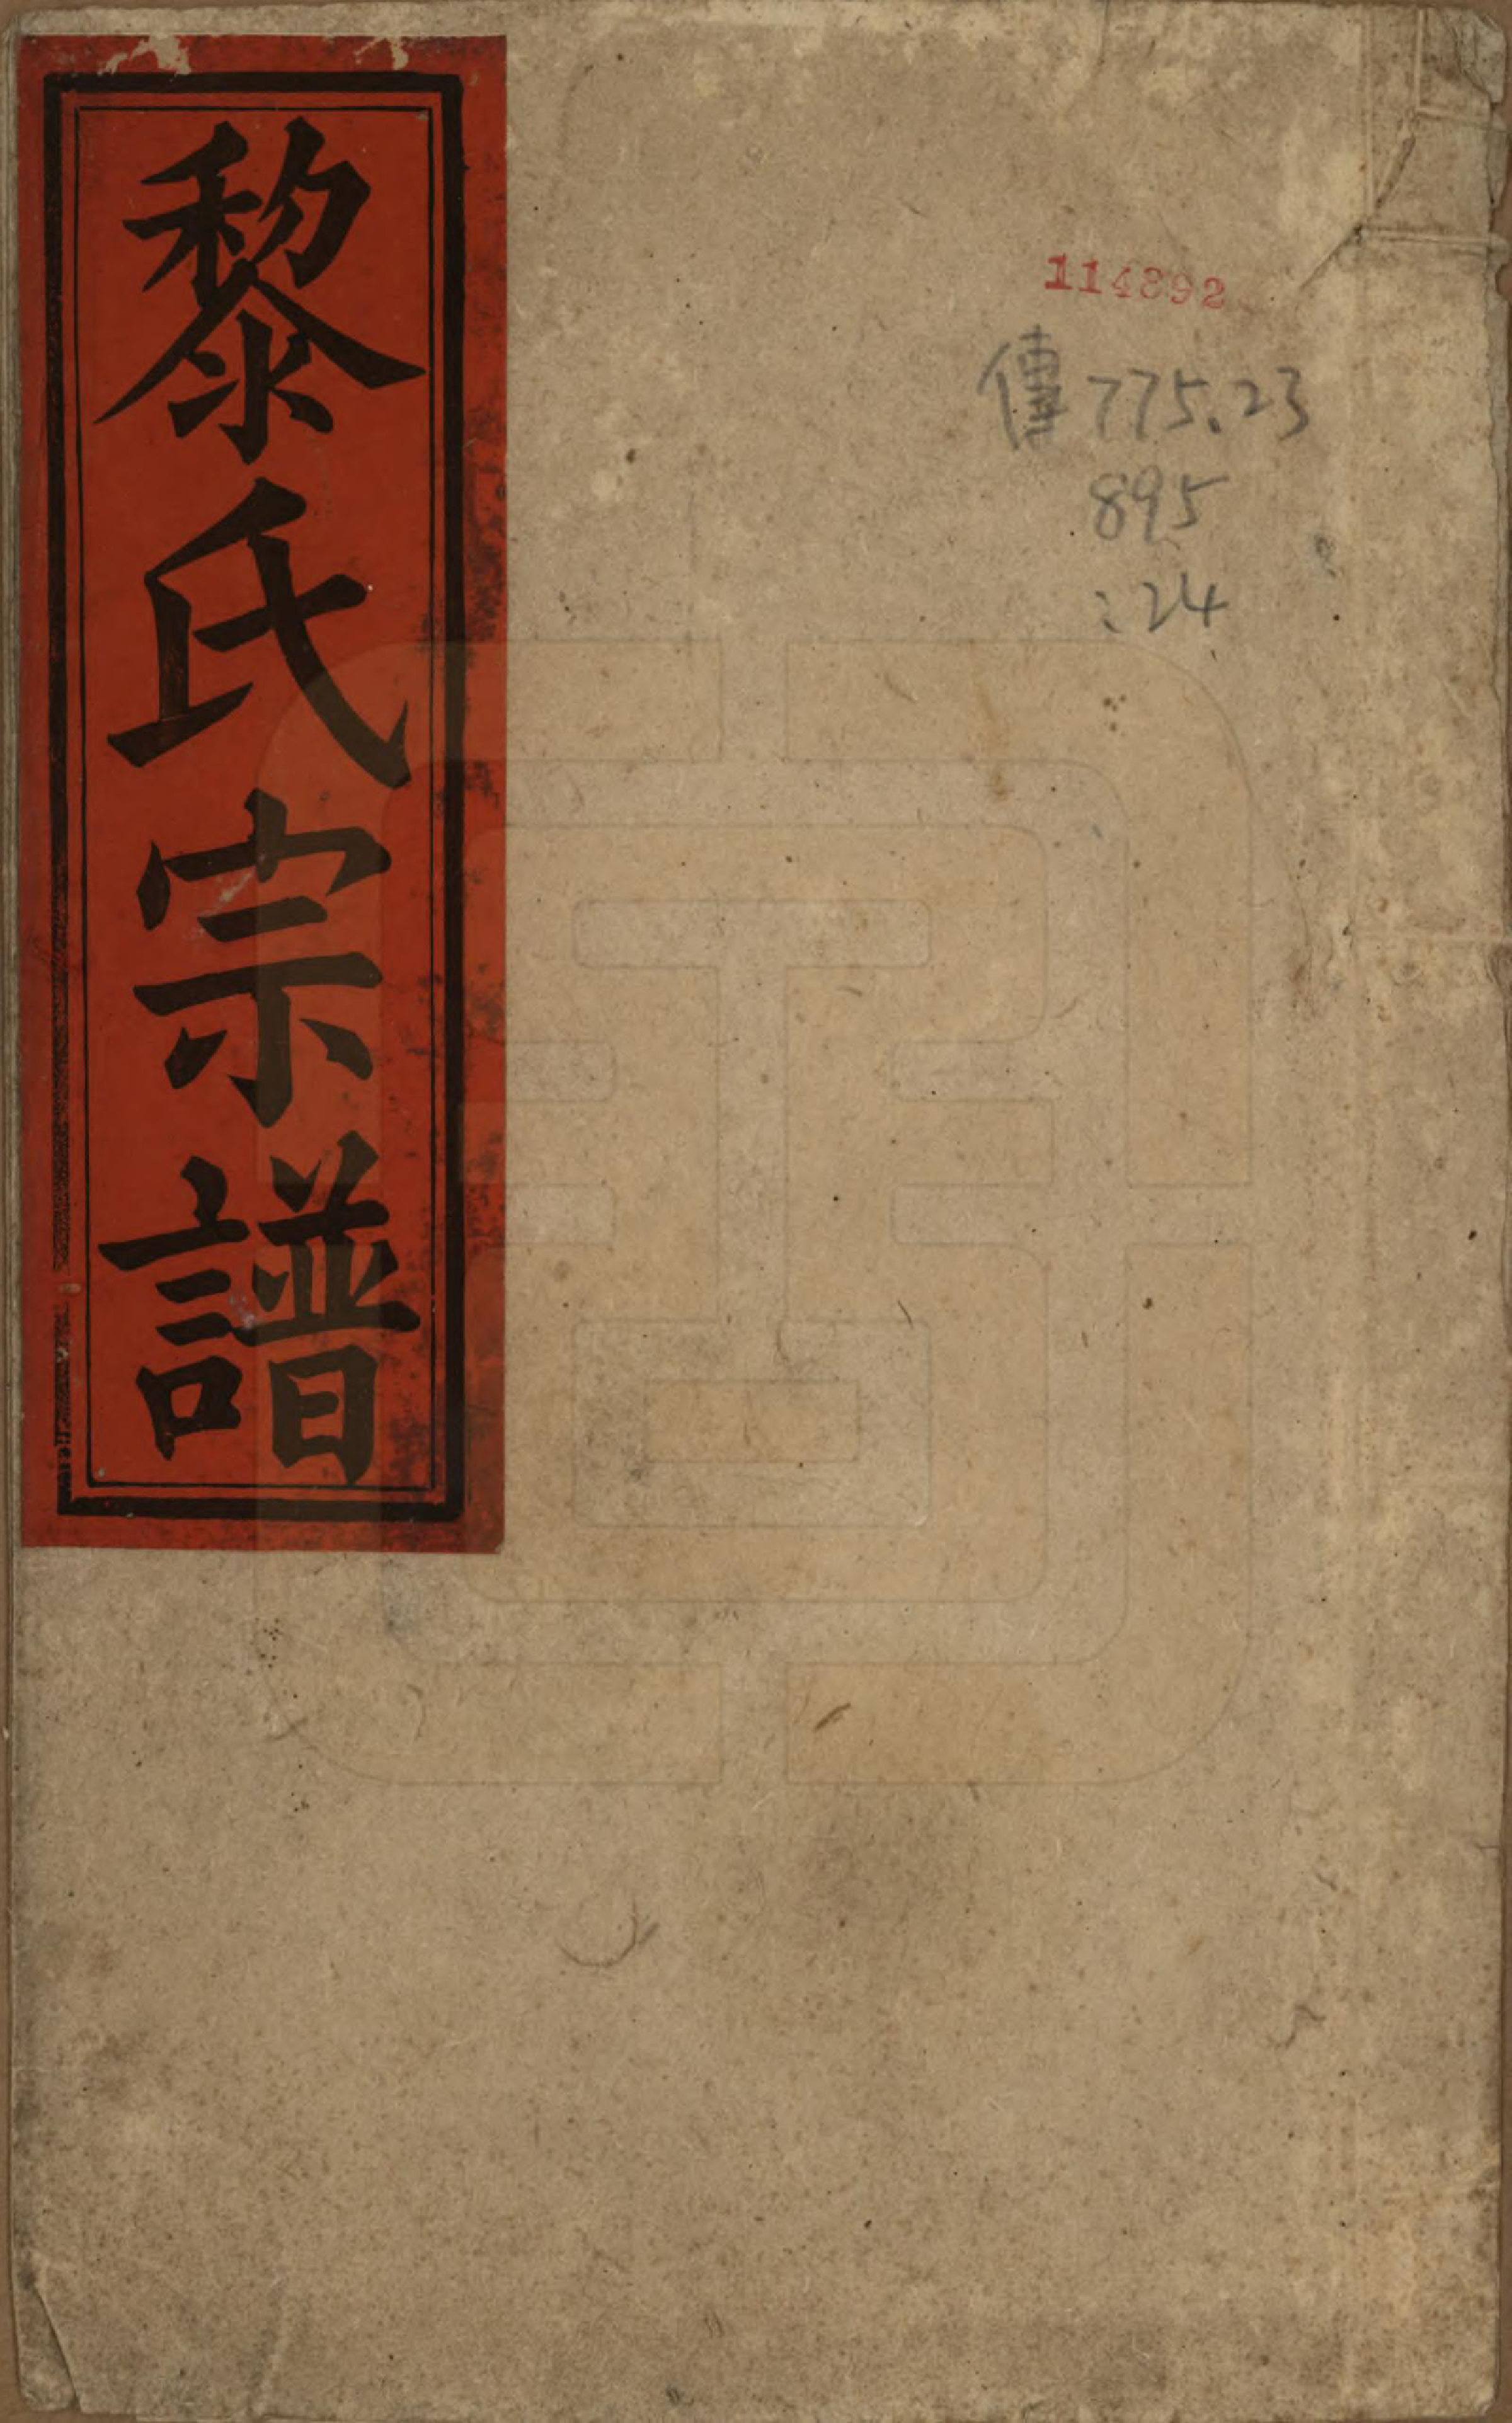 黎氏宗譜
114892
傳775.23
895
:24